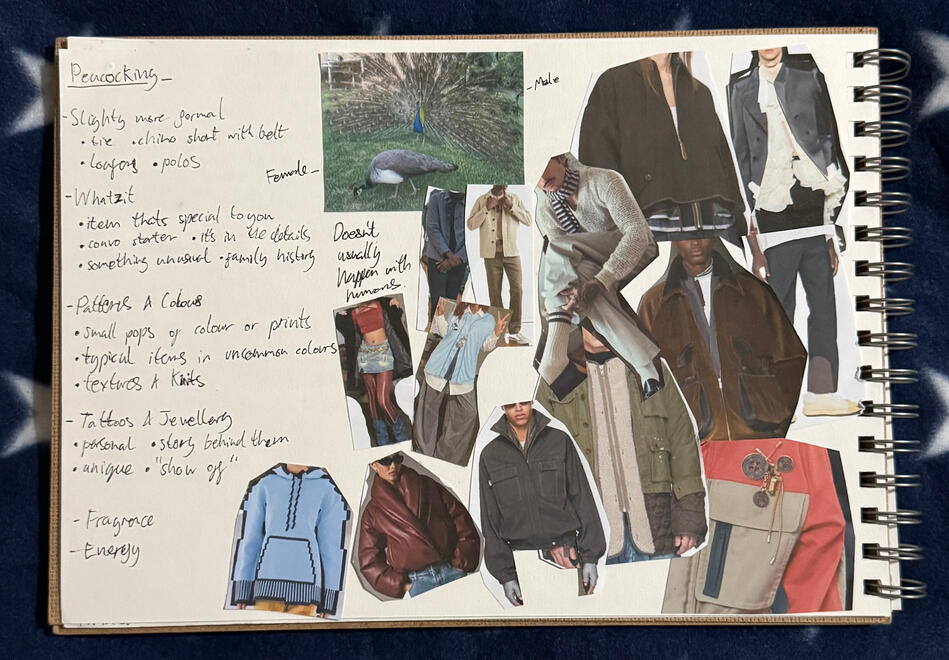 Peacocking_
- Slightly more formal
• tie • chino short with belt
• loafers • polos
- Whatzit
• item thats special to you
• convo starter • it's in the details
• something unusual • family history
- Patterns & Colours
• small pops of colour or prints
• typical items in uncommon colours
• textures & Knits
- Tattoos & Jewellery
• personal • story behind them
• unique • "show off"
- Fragrance
- Energy
- Male
Female -
Doesn't
usually
happen with
humans.